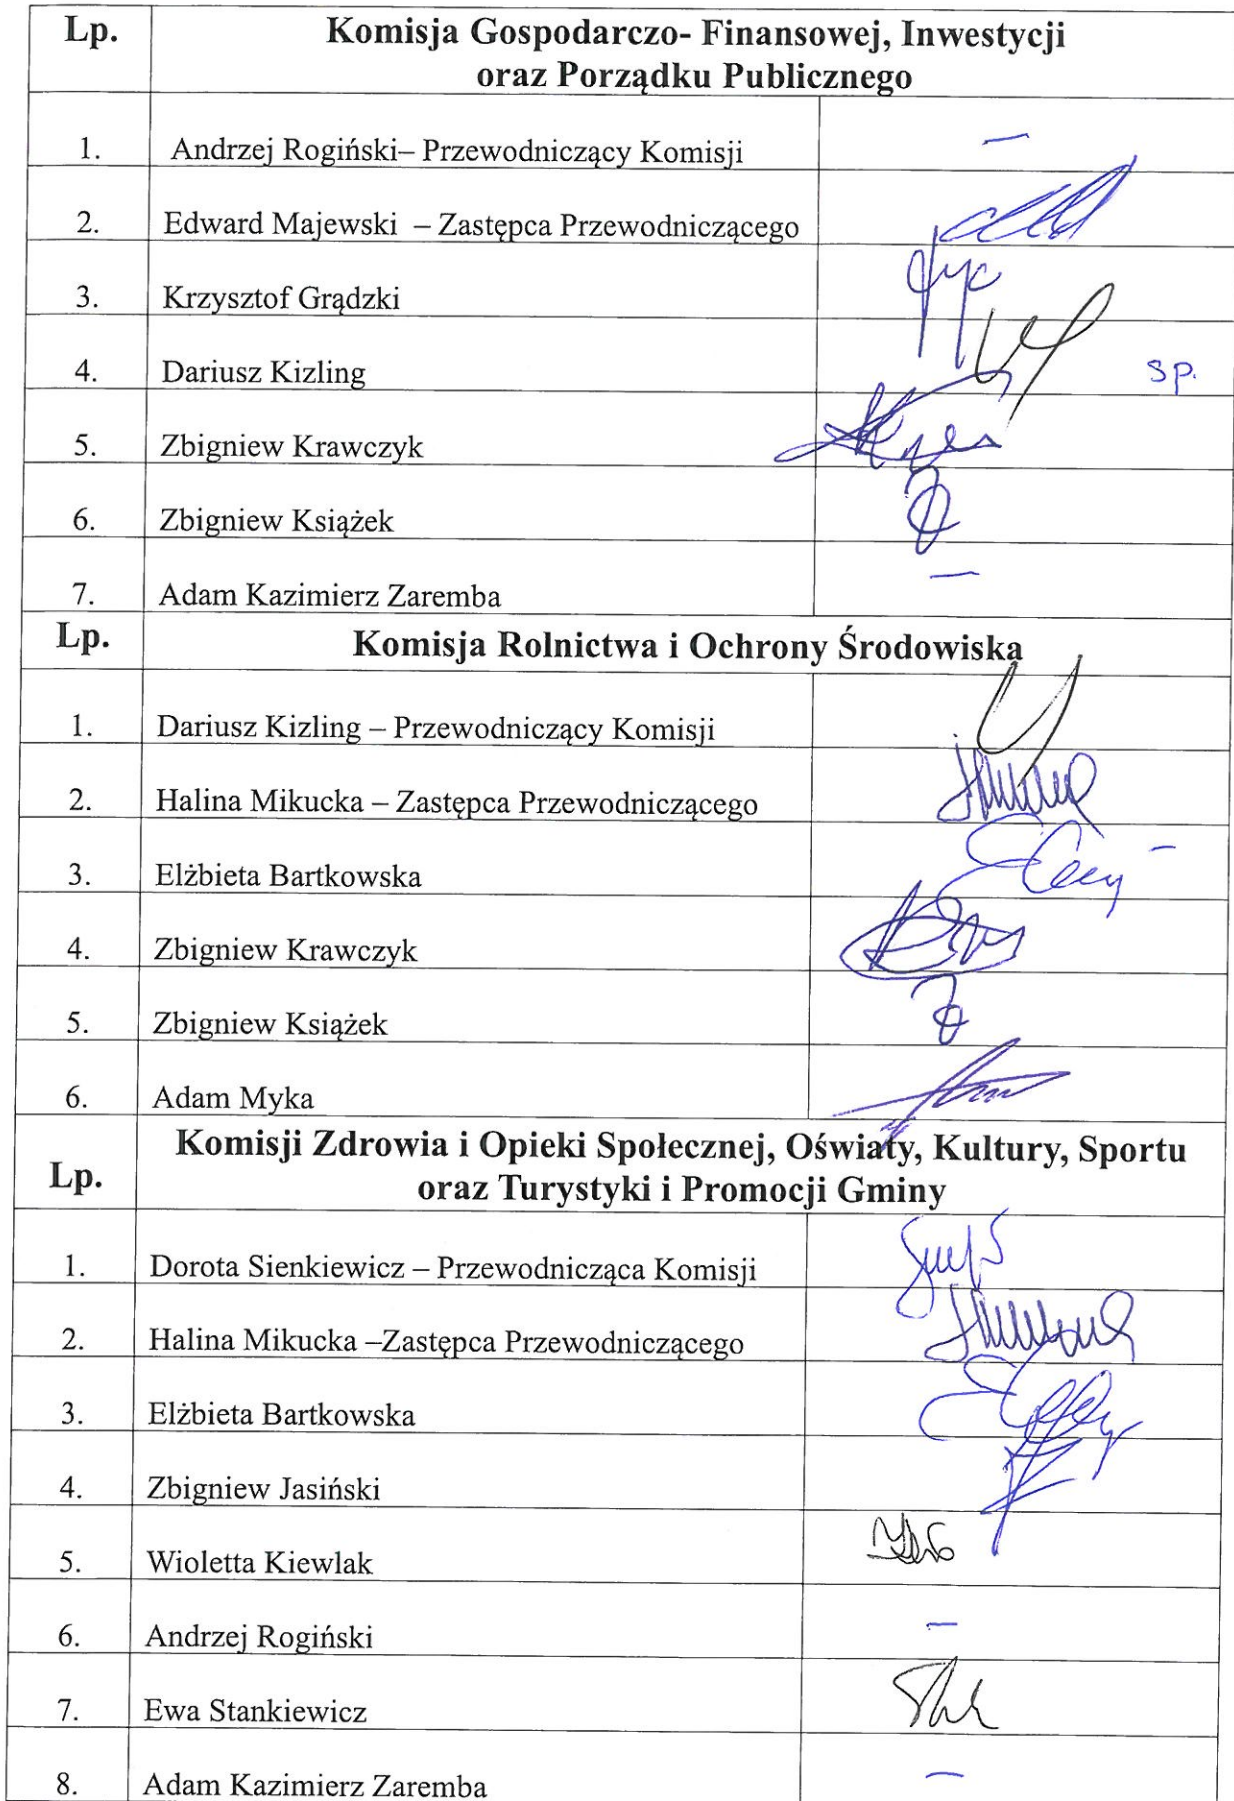 Lp. Komisja Gospodarczo- Finansowej, Inwestycji
oraz Porządku Publicznego
1. Andrzej Rogiński– Przewodniczący Komisji –
2. Edward Majewski – Zastępca Przewodniczącego
3. Krzysztof Grądzki
4. Dariusz Kizling sp.
5. Zbigniew Krawczyk
6. Zbigniew Książek
7. Adam Kazimierz Zaremba –
Lp. Komisja Rolnictwa i Ochrony Środowiska
1. Dariusz Kizling – Przewodniczący Komisji
2. Halina Mikucka – Zastępca Przewodniczącego
3. Elżbieta Bartkowska –
4. Zbigniew Krawczyk
5. Zbigniew Książek
6. Adam Myka
Komisji Zdrowia i Opieki Społecznej, Oświaty, Kultury, Sportu
Lp. oraz Turystyki i Promocji Gminy
1. Dorota Sienkiewicz – Przewodnicząca Komisji
2. Halina Mikucka –Zastępca Przewodniczącego
3. Elżbieta Bartkowska
4. Zbigniew Jasiński
5. Wioletta Kiewlak
6. Andrzej Rogiński –
7. Ewa Stankiewicz
8. Adam Kazimierz Zaremba –